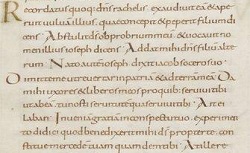 Recordatus quoq; dns rachelis exaudiuit eā & ape
ruit uuluā illius quae concepit & peperit filium di
cens Abstulit ds obprobrium meū; & uocauit no
men illius ioseph dicens Addat mihi dns filiū alte
rum Nato autē ioseph dixit iacob socero suo
Dimitte me ut reuertar in patriā & ad terrā meā Da
mihi uxores & liberos meos pro quib; seruiui tibi
ut abeā tu nosti seruitutē qua seruiui tibi Ait ei
laban Inueniā gratiā in conspectu tuo experimen
to didici quod benedixerit mihi ds propter te con
stitue mercedē tuam quam dem tibi At ille re